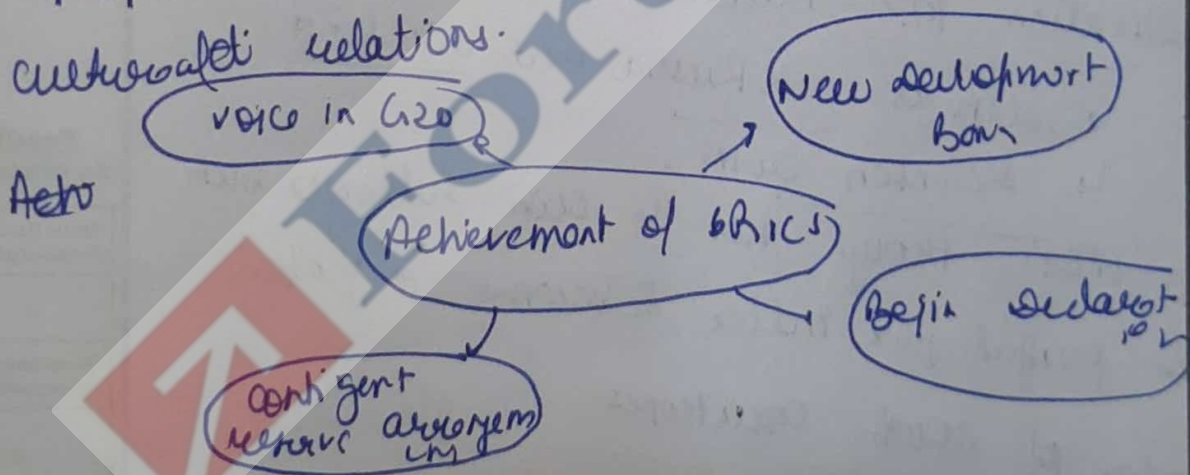 relations.
voice in G20
New Development
Bank
Achievement of BRICS
Beijin Declarat
ion
contigent
reserve arrangem
For